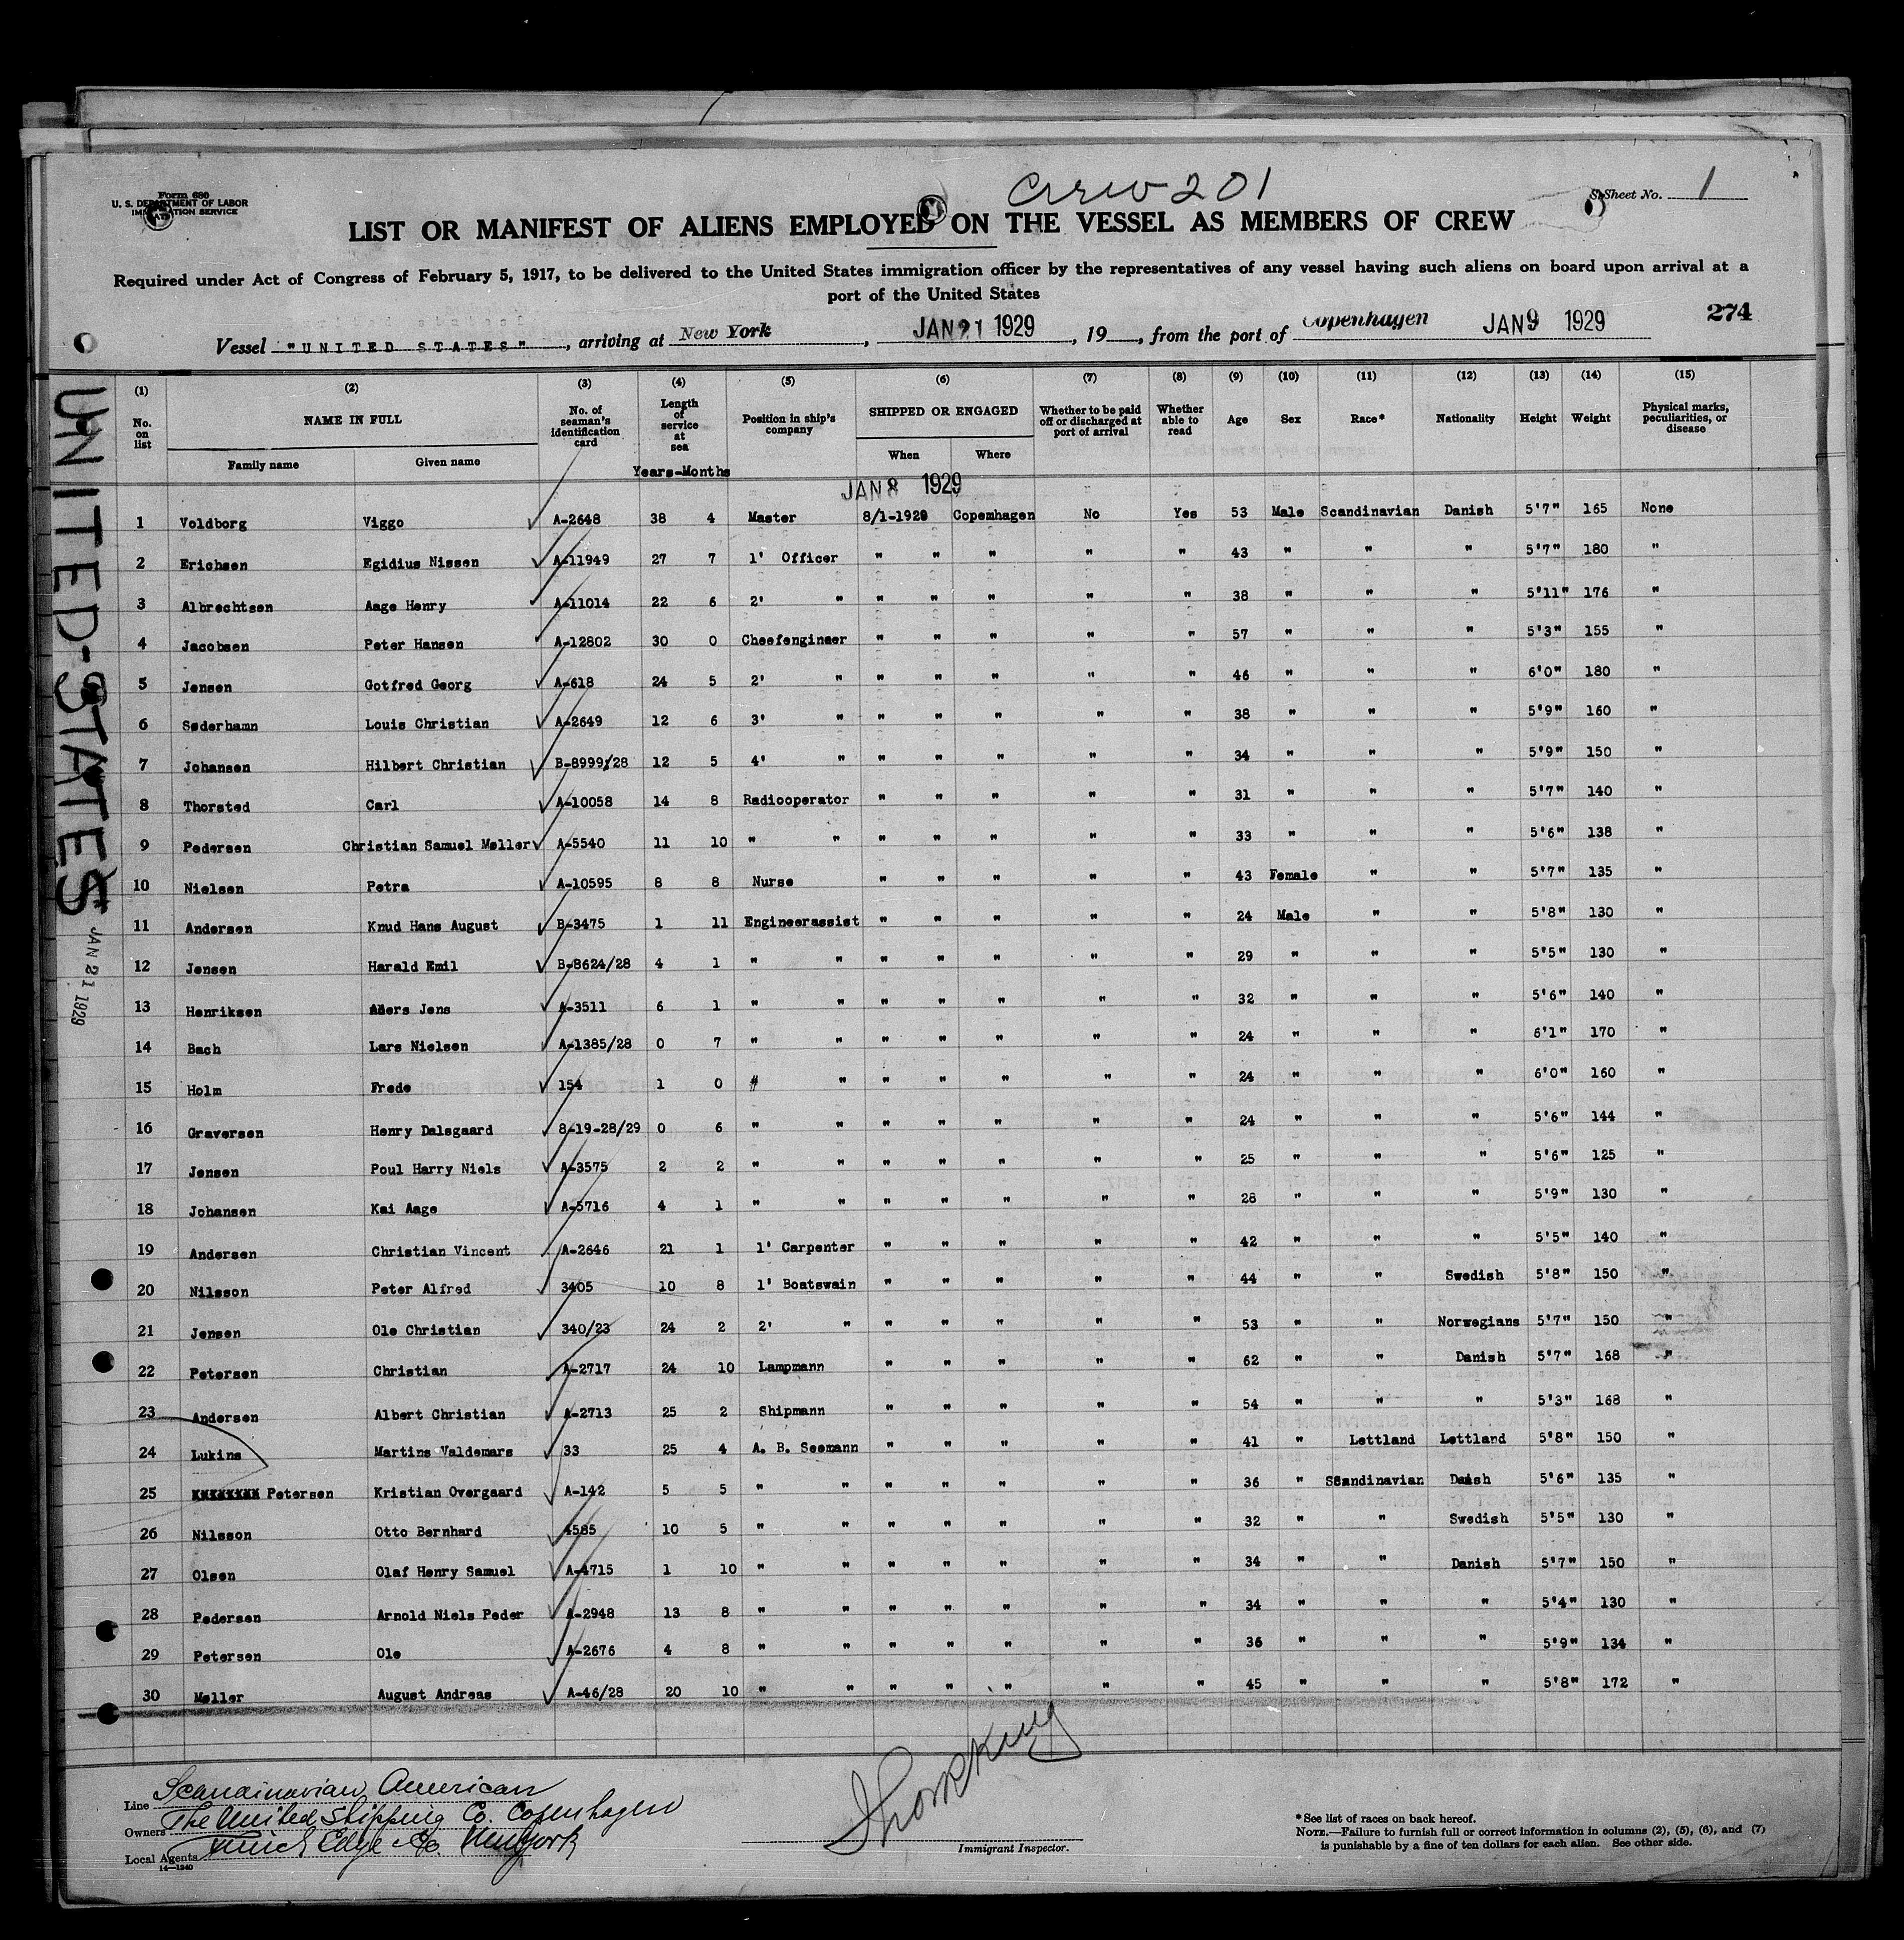 Form 680
U. S. DEPARTMENT OF LABOR
IMMIGRATION SERVICE
Crew 201
Sheet No. 1
LIST OR MANIFEST OF ALIENS EMPLOYED ON THE VESSEL AS MEMBERS OF CREW
Required under Act of Congress of February 5, 1917, to be delivered to the United States immigration officer by the representatives of any vessel having such aliens on board upon arrival at a
port of the United States
274
Vessel "UNITED STATES", arriving at New York, JAN 21 1929, 19__, from the port of Copenhagen JAN 9 1929
UNITED-STATES
JAN 21 1929
(1) (2) (3) (4) (5) (6) (7) (8) (9) (10) (11) (12) (13) (14) (15)
No. on list
NAME IN FULL
Family name
Given name
No. of seaman's identification card
Length of service at sea
Years-Months
Position in ship's company
SHIPPED OR ENGAGED
When
Where
Whether to be paid off or discharged at port of arrival
Whether able to read
Age
Sex
Race*
Nationality
Height
Weight
Physical marks, peculiarities, or disease
JAN 8 1929
1 Voldborg Viggo A-2648 38 4 Master 8/1-1929 Copenhagen No Yes 53 Male Scandinavian Danish 5'7" 165 None
2 Erichsen Egidius Nissen A-11949 27 7 1' Officer " " " " " 43 " " " 5'7" 180 "
3 Albrechtsen Aage Henry A-11014 22 6 2' " " " " " " 38 " " " 5'11" 176 "
4 Jacobsen Peter Hansen A-12802 30 0 Cheefengineer " " " " " 57 " " " 5'3" 155 "
5 Jensen Gotfred Georg A-618 24 5 2' " " " " " " 46 " " " 6'0" 180 "
6 Søderhamn Louis Christian A-2649 12 6 3' " " " " " " 38 " " " 5'9" 160 "
7 Johansen Hilbert Christian B-8999/28 12 5 4' " " " " " " 34 " " " 5'9" 150 "
8 Thorsted Carl A-10058 14 8 Radiooperator " " " " " 31 " " " 5'7" 140 "
9 Pedersen Christian Samuel Møller A-5540 11 10 " " " " " " " 33 " " " 5'6" 138 "
10 Nielsen Petra A-10595 8 8 Nurse " " " " " 43 Female " " 5'7" 135 "
11 Andersen Knud Hans August B-3475 1 11 Engineerassist " " " " " 24 Male " " 5'8" 130 "
12 Jensen Harald Emil B-8624/28 4 1 " " " " " " " 29 " " " 5'5" 130 "
13 Henriksen Jens A-3511 6 1 " " " " " " " 32 " " " 5'6" 140 "
14 Bach Lars Nielsen A-1385/28 0 7 " " " " " " " 24 " " " 6'1" 170 "
15 Holm Frede 154 1 0 " " " " " " " 24 " " " 6'0" 160 "
16 Graversen Henry Dalsgaard 8-19-28/29 0 6 " " " " " " " 24 " " " 5'6" 144 "
17 Jensen Poul Harry Niels A-3575 2 2 " " " " " " " 25 " " " 5'6" 125 "
18 Johansen Kai Aage A-5716 4 1 " " " " " " " 28 " " " 5'9" 130 "
19 Andersen Christian Vincent A-2646 21 1 1' Carpenter " " " " " 42 " " " 5'5" 140 "
20 Nilsson Peter Alfred 3405 10 8 1' Boatswain " " " " " 44 " " Swedish 5'8" 150 "
21 Jensen Ole Christian 340/23 24 2 2' " " " " " " 53 " " Norwegians 5'7" 150 "
22 Petersen Christian A-2717 24 10 Lampmann " " " " " 62 " " Danish 5'7" 168 "
23 Andersen Albert Christian A-2713 25 2 Shipmann " " " " " 54 " " " 5'3" 168 "
24 Lukins Martins Valdemars 33 25 4 A. B. Seemann " " " " " 41 " Lettland Lettland 5'8" 150 "
25 Petersen Kristian Overgaard A-142 5 5 " " " " " " " 36 " Scandinavian Danish 5'6" 135 "
26 Nilsson Otto Bernhard 4585 10 5 " " " " " " " 32 " " Swedish 5'5" 130 "
27 Olsen Olaf Henry Samuel A-4715 1 10 " " " " " " " 34 " " Danish 5'7" 150 "
28 Pedersen Arnold Niels Peder A-2948 13 8 " " " " " " " 34 " " " 5'4" 130 "
29 Petersen Ole A-2676 4 8 " " " " " " " 36 " " " 5'9" 134 "
30 Møller August Andreas A-46/28 20 10 " " " " " " " 45 " " " 5'8" 172 "
Line Scandinavian American
Owners The United Shipping Co. Copenhagen
Local Agents Edye & Co. New York
14-1240
Immigrant Inspector.
*See list of races on back hereof.
NOTE.—Failure to furnish full or correct information in columns (2), (5), (6), and (7)
is punishable by a fine of ten dollars for each alien. See other side.